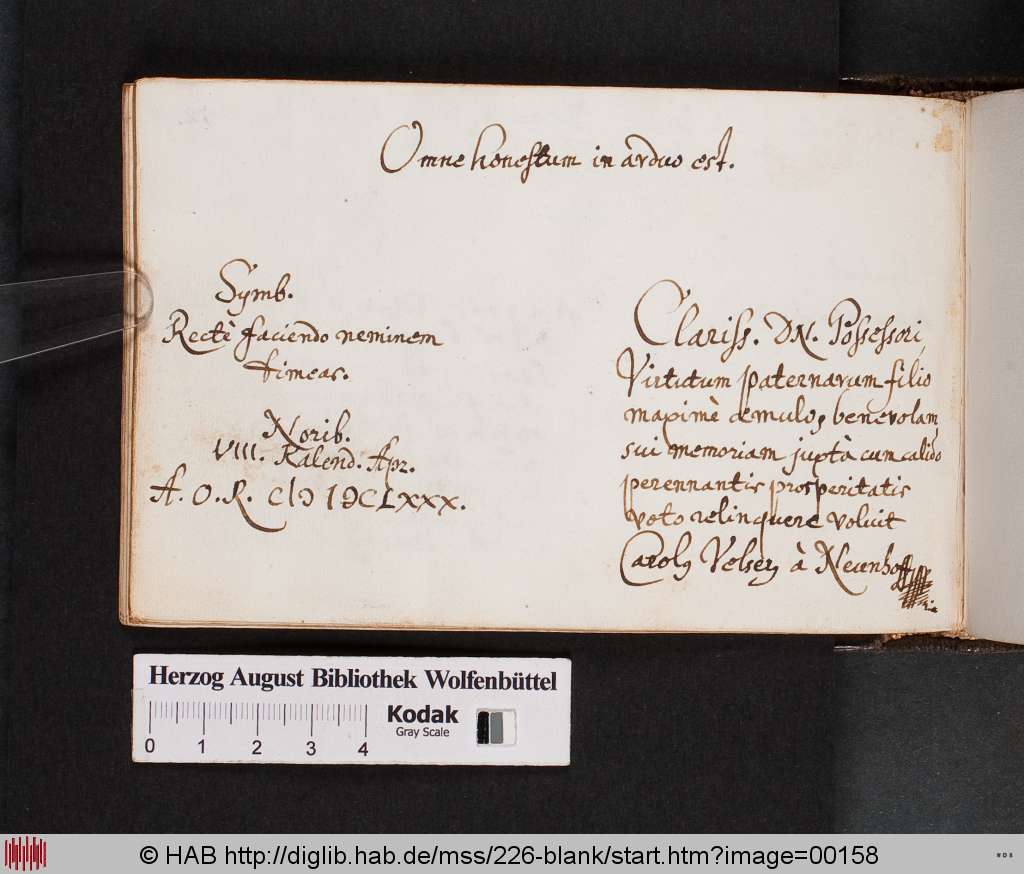 Omne honestum in arduo est.
Symb.
Rectè faciendo neminem
timeas.
Norib.
VIII. Kalend. Apr.
A. O. R. CIↃ IↃCLXXX.
Clariss. DN. Possessori,
Virtutum paternarum filio
maximè aemulo, benevolam
sui memoriam juxtà cum calido
perennantis prosperitatis
voto relinquere voluit
Carolꝰ Velserꝰ à Neunhoff
Herzog August Bibliothek Wolfenbüttel
Kodak
Gray Scale
0 1 2 3 4
© HAB http://diglib.hab.de/mss/226-blank/start.htm?image=00158
WDB